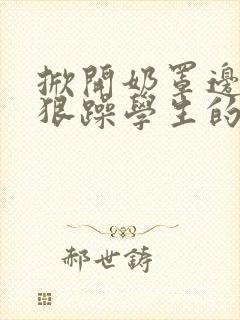 掀開奶罩邊
狠躁學生的
郝世鋳